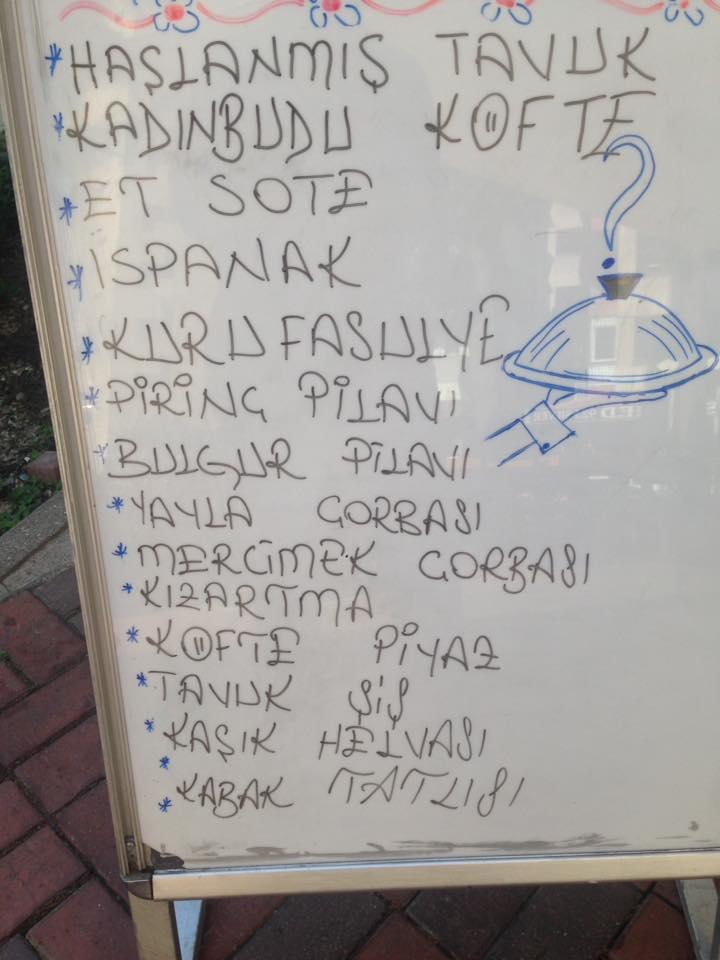 * HAŞLANMIŞ TAVUK
* KADINBUDU KÖFTE
* ET SOTE
* İSPANAK
* KURU FASULYE
* PİRİNÇ PİLAVI
* BULGUR PİLAVI
* YAYLA ÇORBASI
* MERCİMEK ÇORBASI
* KIZARTMA
* KÖFTE PİYAZ
* TAVUK ŞİŞ
* KAŞIK HELVASI
*
* KABAK TATLISI
?